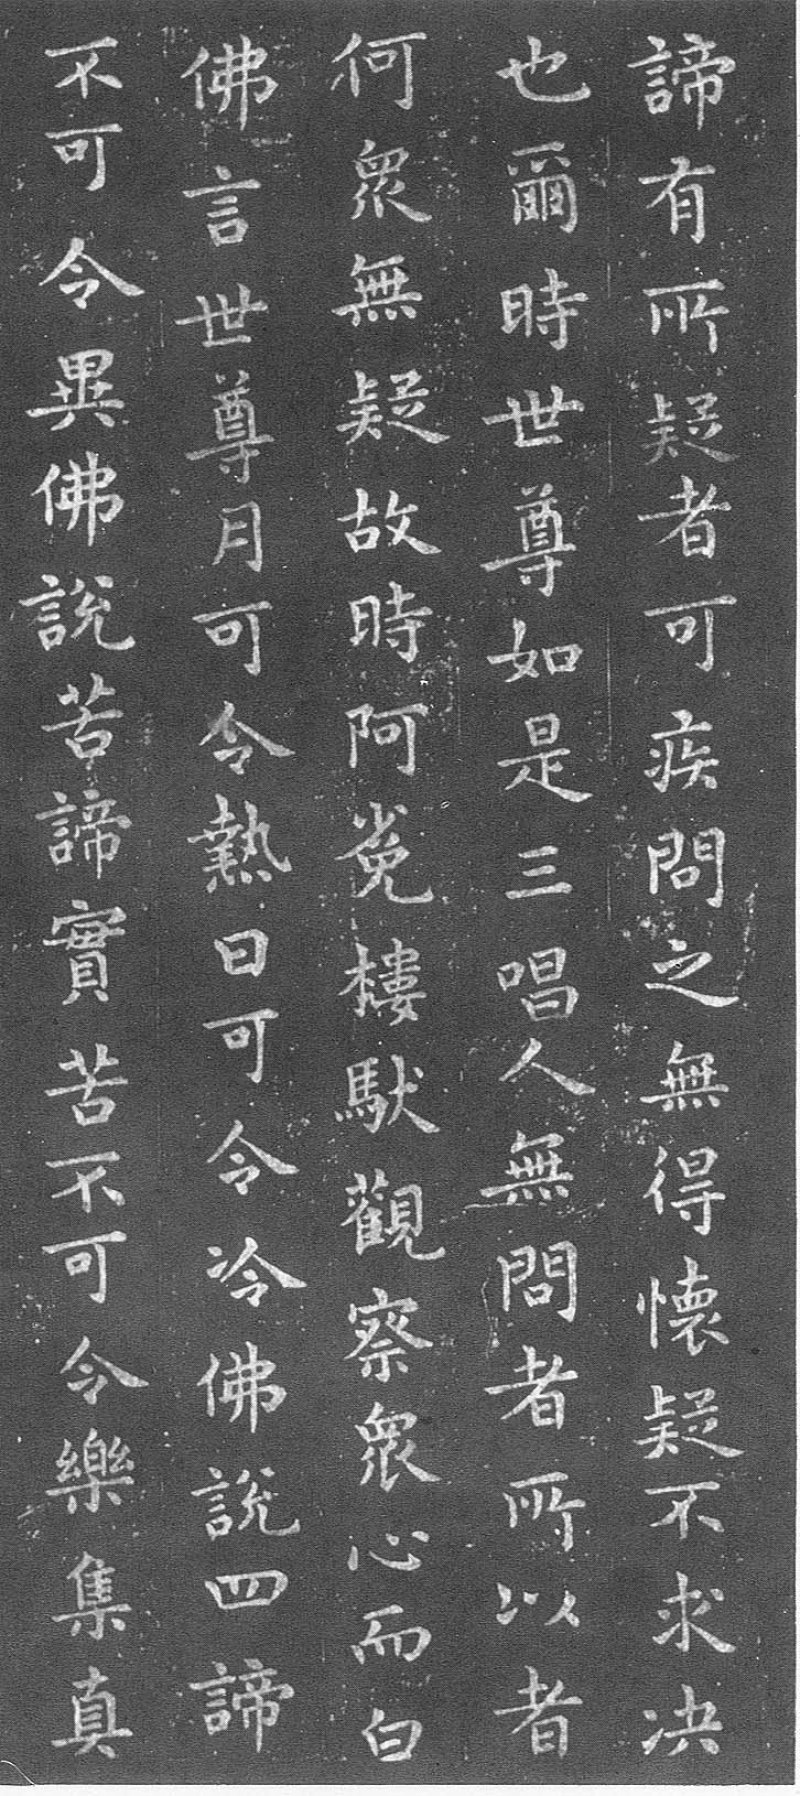 諦有所疑者可疾問之無得懷疑不求決
也爾時世尊如是三唱人無問者所以者
何眾無疑故時阿㝹樓馱觀察眾心而白
佛言世尊月可令熱日可令冷佛說四諦
不可令異佛說苦諦實苦不可令樂集真